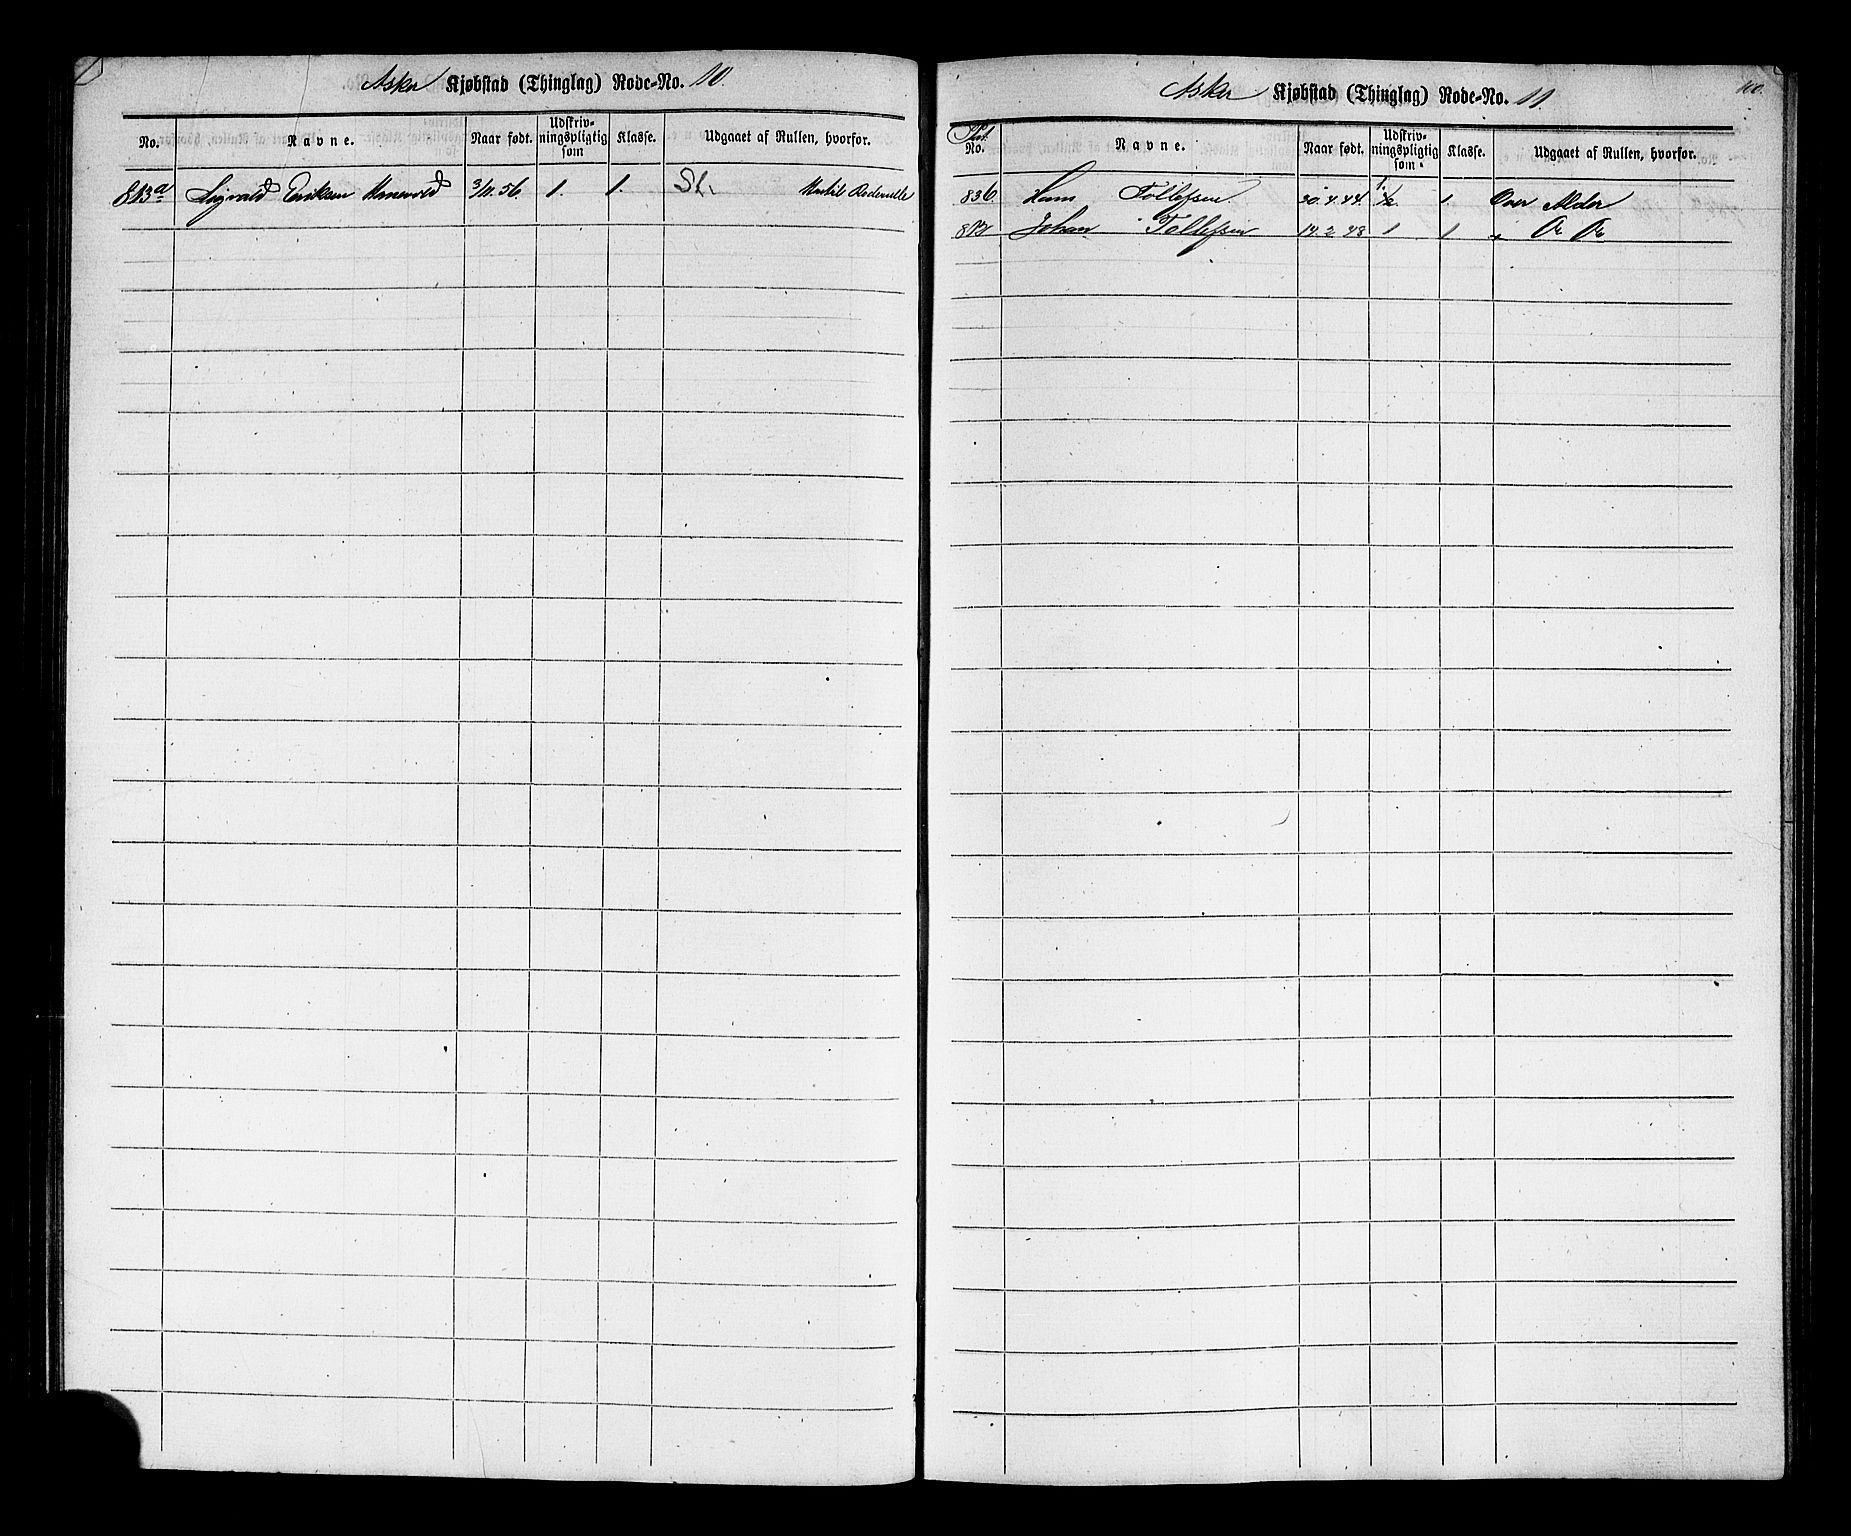 Asker Kjøbstad (Thinglag) Rode-No. 10.
No. Navne. Naar født. Udskrivningspligtig som Klasse. Udgaaet af Rullen, hvorfor.
813a Sigvald Eriksen 3/11.56 1. 1. St.
110.
Asker Kjøbstad (Thinglag) Rode-No. 11
No. Navne. Naar født. Udskrivningspligtig som Klasse. Udgaaet af Rullen, hvorfor.
836 Hans Tollefsen 30.4.44. 1 1/2 1 Over Alder
Johan Tollefsen 14.2.48 1 1 " Do Do